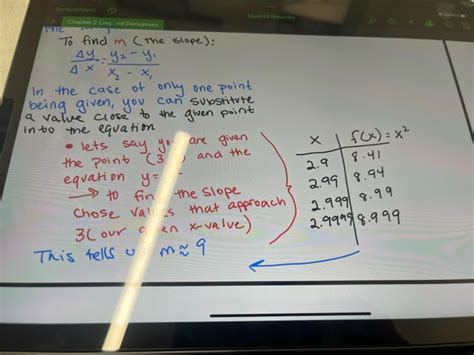 Chapter 2 Lim
nd Derivatives
To find m (the slope):
Δy = y₂ - y₁
Δx   x₂ - x₁
In the case of only one point
being given, you can substitute
a value close to the given point
into the equation
• lets say you are given
the point (3 and the
equation y=
→ to fin the slope
chose val s that approach
3(our x-value)
This tells m ≈ 9
x | f(x) = x²
2.9 | 8.41
2.99 | 8.94
2.999 | 8.99
2.9999 | 8.999